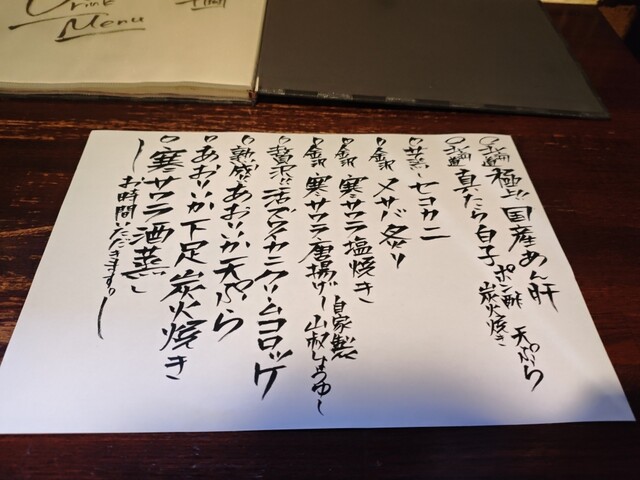 Drink
Menu
北海道 極上!! 国産あん肝
北海道 真だら白子 ポン酢 天ぷら 炭火焼き
セコカニ
金沢 〆サバ炙り
金沢 寒サワラ塩焼き
金沢 寒サワラ唐揚げ 自家製山椒しょうゆ
贅沢に活ズワイカニクリームコロッケ
熟成あおりいか天ぷら
あおりいか下足炭火焼き
寒サワラ酒蒸し
お時間いただきます。